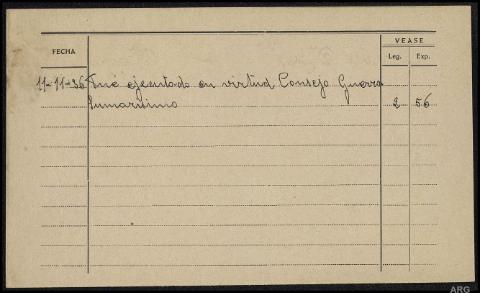 VEASE
FECHA Leg. Exp.
11-11-36 Fué ejecutado en virtud Consejo Guerra
Sumarisimo 2 56
ARG